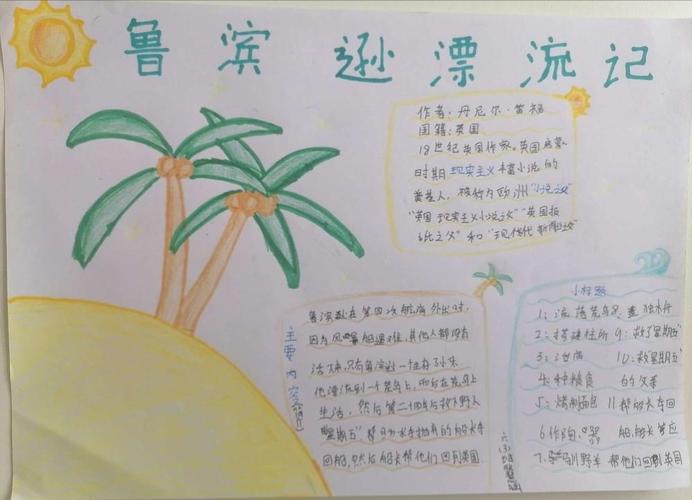 鲁滨逊漂流记
作者：丹尼尔·笛福
国籍：英国
18世纪英国作家。英国启蒙
时期现实主义丰富小说的
奠基人，被称为欧洲"小说之父"
"英国现实主义小说之父""英国报
纸之父"和"现代新闻之父"
主要内容(简介)
鲁滨逊在第四次航海外出时，
因为风暴船遇难，其他人都没有
活下来，只有鲁滨逊一个
他漂流到一个荒岛上，而后在荒岛上
生活，然后第二十四年后救下野人
"星期五"帮
回船，然后船长帮他们回到英国
小标题
1：流落荒岛 8：造独木舟
2：搭建住所 9：救了星期五
3：
4：种粮食
5：烤制面包 11帮船长夺回
6作陶
7：驯野羊 帮他们回到英国
10：救星期五
的父亲